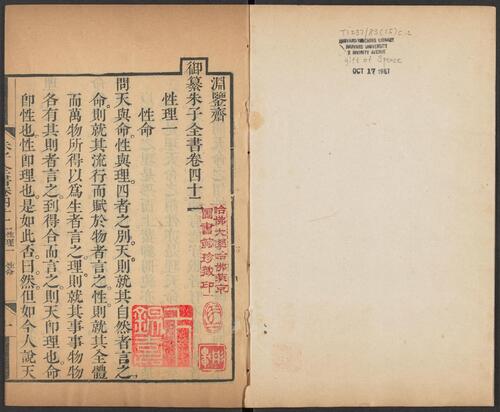 淵鑒齋
御纂朱子全書卷四十二
性理一
性命
問天與命性與理四者之別天則就其自然者言之
命則就其流行而賦於物者言之性則就其全體
而萬物所得以為生者言之理則就其事事物物
各有其則者言之到得合而言之則天即理也命
即性也性即理也是如此否曰然但如今人說天
朱子全書卷四十二 性理一 性命
一
哈佛大學哈佛燕京
圖書館珍藏印
HARVARD-YENCHING LIBRARY
HARVARD UNIVERSITY
2 DIVINITY AVENUE
gift of Spence
OCT 17 1967